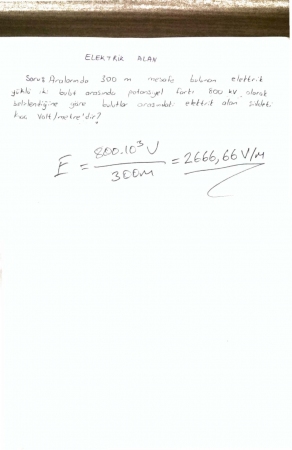 ELEKTRİK ALAN
Soru: Aralarında 300 m mesafe bulunan elektrik
yüklü iki bulut arasında potansiyel farkı 800 kV olarak
belirlendiğine göre bulutlar arasındaki elektrik alan şiddeti
kaç Volt/metre'dir?
E = 800.10³ V / 300m = 2666,66 V/m